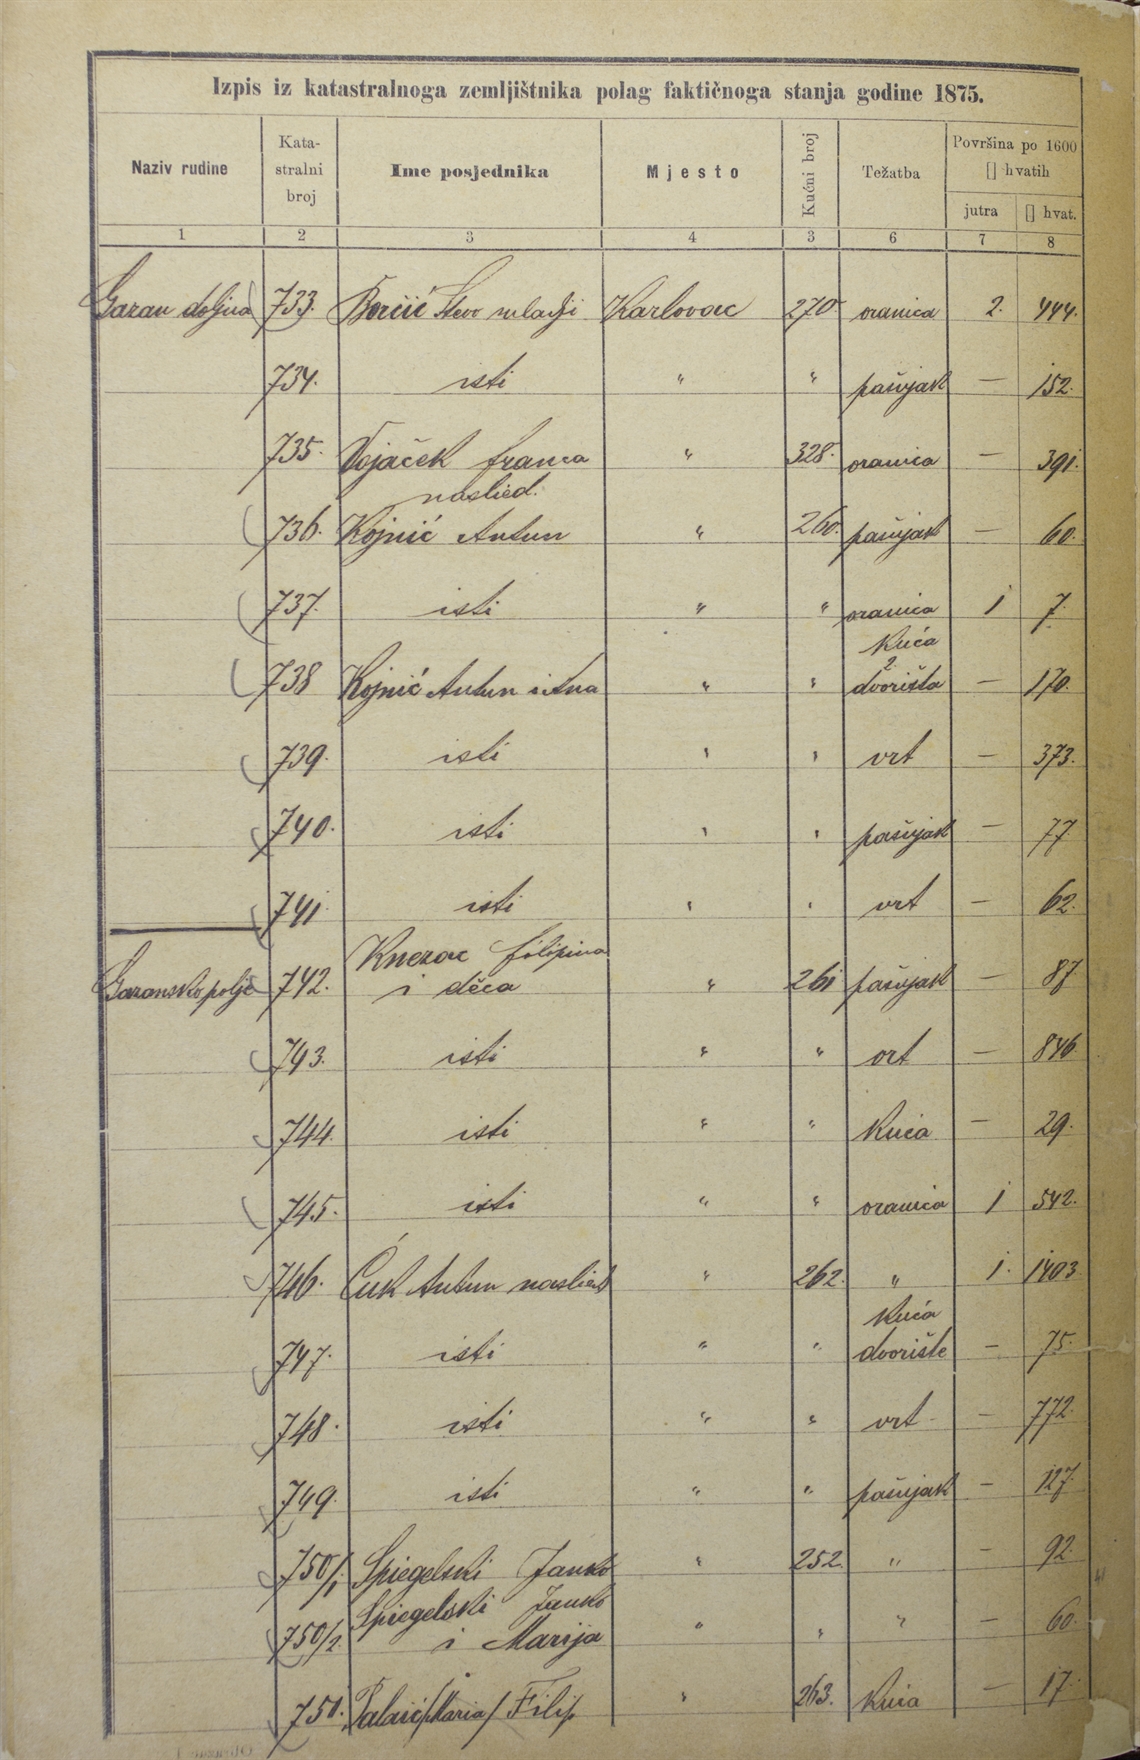 Izpis iz katastralnoga zemljištnika polag faktičnoga stanja godine 1875.
Naziv rudine Kata-stralni broj Ime posjednika Mjesto Kućni broj Težatba Površina po 1600 [] hvatih
jutra [] hvat.
1 2 3 4 3 6 7 8
Gazan doljna 733. Borčić Stevo mladji Karlovac 270 oranica 2. 444.
734. isti " " pašnjak — 152.
735. Vojaček Franca " 328. oranica — 391.
naslied.
736. Kojnić Antun " 260. pašnjak — 60.
737. isti " " oranica 1 7.
Kuća
2
738 Kojnić Antun i Ana " " dvorišta — 170.
739. isti " " vrt — 373.
740. isti " " pašnjak — 77
741 isti " " vrt — 62.
Knezoc Filipina
Gazansko polje 742. i děca " 261 pašnjak — 87
743. isti " " vrt — 846
744. isti " " Kuća — 29.
745. isti " " oranica 1 542.
746. Cuk Antun naslied " 262. " 1. 1403
Kuća
747. isti " " dvorište — 75.
748. isti " " vrt — 772.
749. isti " " pašnjak — 127.
750/1 Spiegelski Janko " 252. " — 92
Spiegelski Janko
750/2. i Marija " " " — 60.
751. /Maria/ Filip " 263. Kuća — 17.